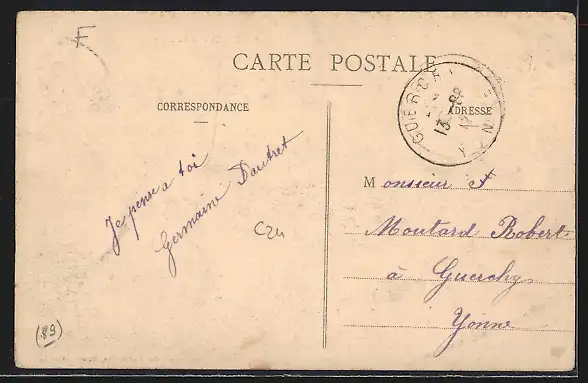 F
CARTE POSTALE
CORRESPONDANCE
ADRESSE
GUERCHY
13
Je pense a toi
Germaine Dautret
C24
Monsieur F
Moutard Robert
à Guerchy
Yonne
(89)